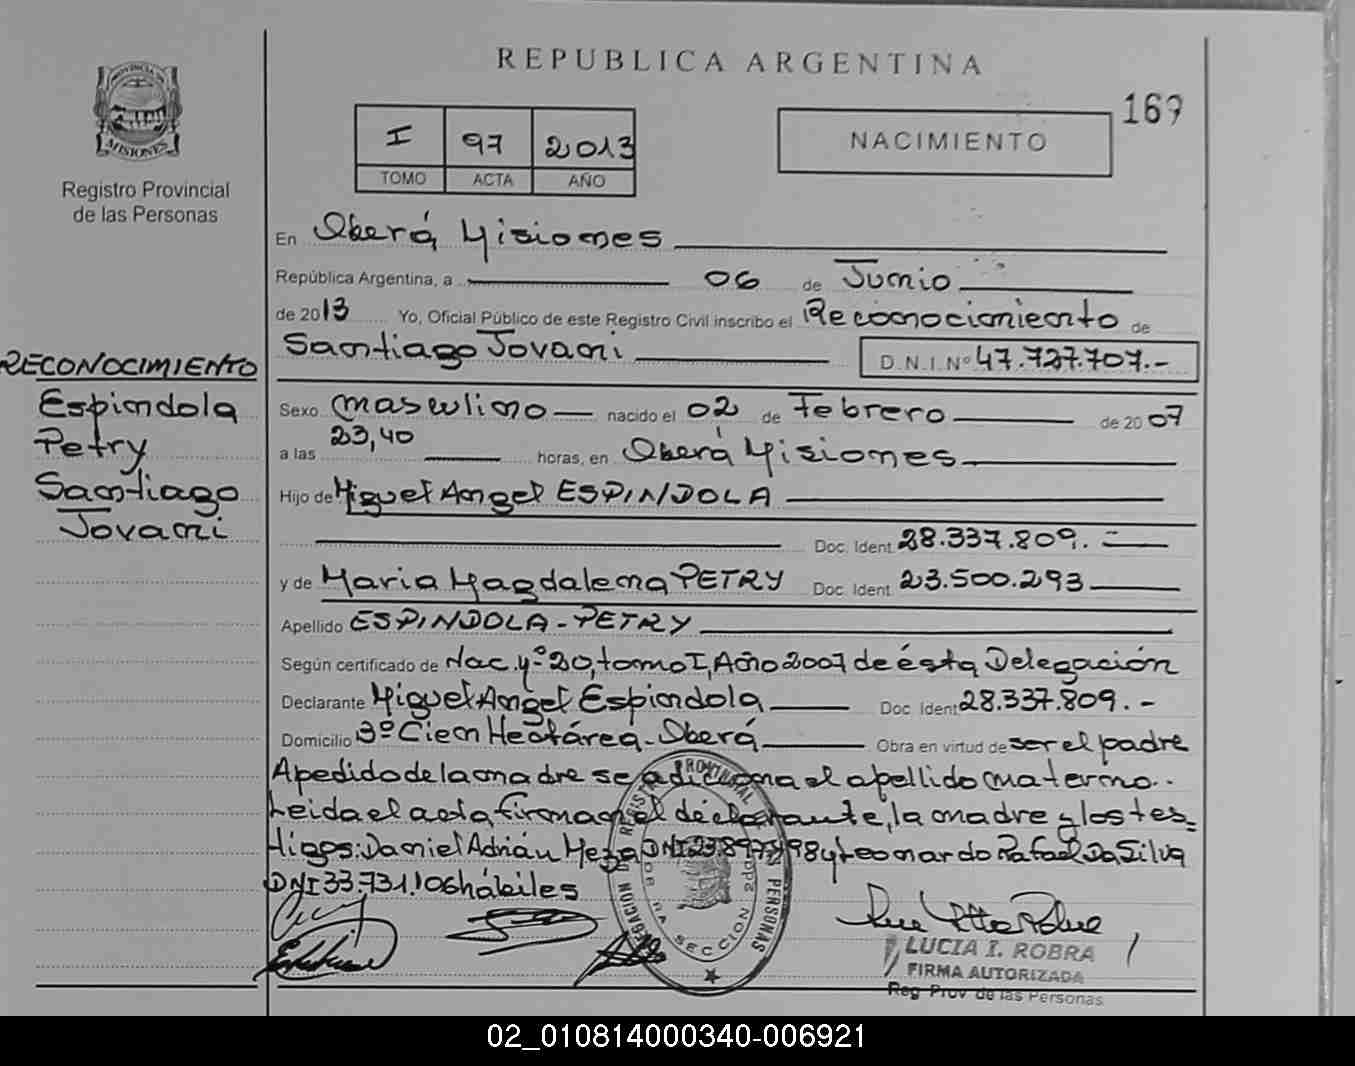 REPUBLICA ARGENTINA
169
PROVINCIA DE
MISIONES
Registro Provincial
de las Personas
I 97 2013
TOMO ACTA AÑO
NACIMIENTO
En Oberá Misiones
República Argentina, a 06 de Junio
de 2013 Yo, Oficial Público de este Registro Civil inscribo el Reconocimiento de
Santiago Jovani D.N.I.Nº 47.727.707.-
RECONOCIMIENTO
Espindola
Petry
Santiago
Jovani
Sexo masculino nacido el 02 de Febrero de 2007
a las 23,40 horas, en Oberá Misiones
Hijo de Miguel Angel ESPINDOLA
Doc. Ident. 28.337.809.-
y de Maria Magdalena PETRY Doc. Ident. 23.500.293
Apellido ESPINDOLA-PETRY
Según certificado de Nac. Nº 20, tomo I, Año 2007 de ésta Delegación
Declarante Miguel Angel Espindola Doc. Ident 28.337.809.-
Domicilio 3º Cien Hectárea-Oberá Obra en virtud de ser el padre
A pedido de la madre se adiciona el apellido materno..
Leida el acta firman el declarante, la madre y los tes=
tigos: Daniel Adrián Meza DNI 23.897. 98 y Leonardo Rafael Da Silva
DNI 33.731.106 hábiles
REGISTRO PROVINCIAL DE LAS PERSONAS
SECCION 2da
LUCIA I. ROBRA
FIRMA AUTORIZADA
Reg Prov de las Personas
02_010814000340-006921